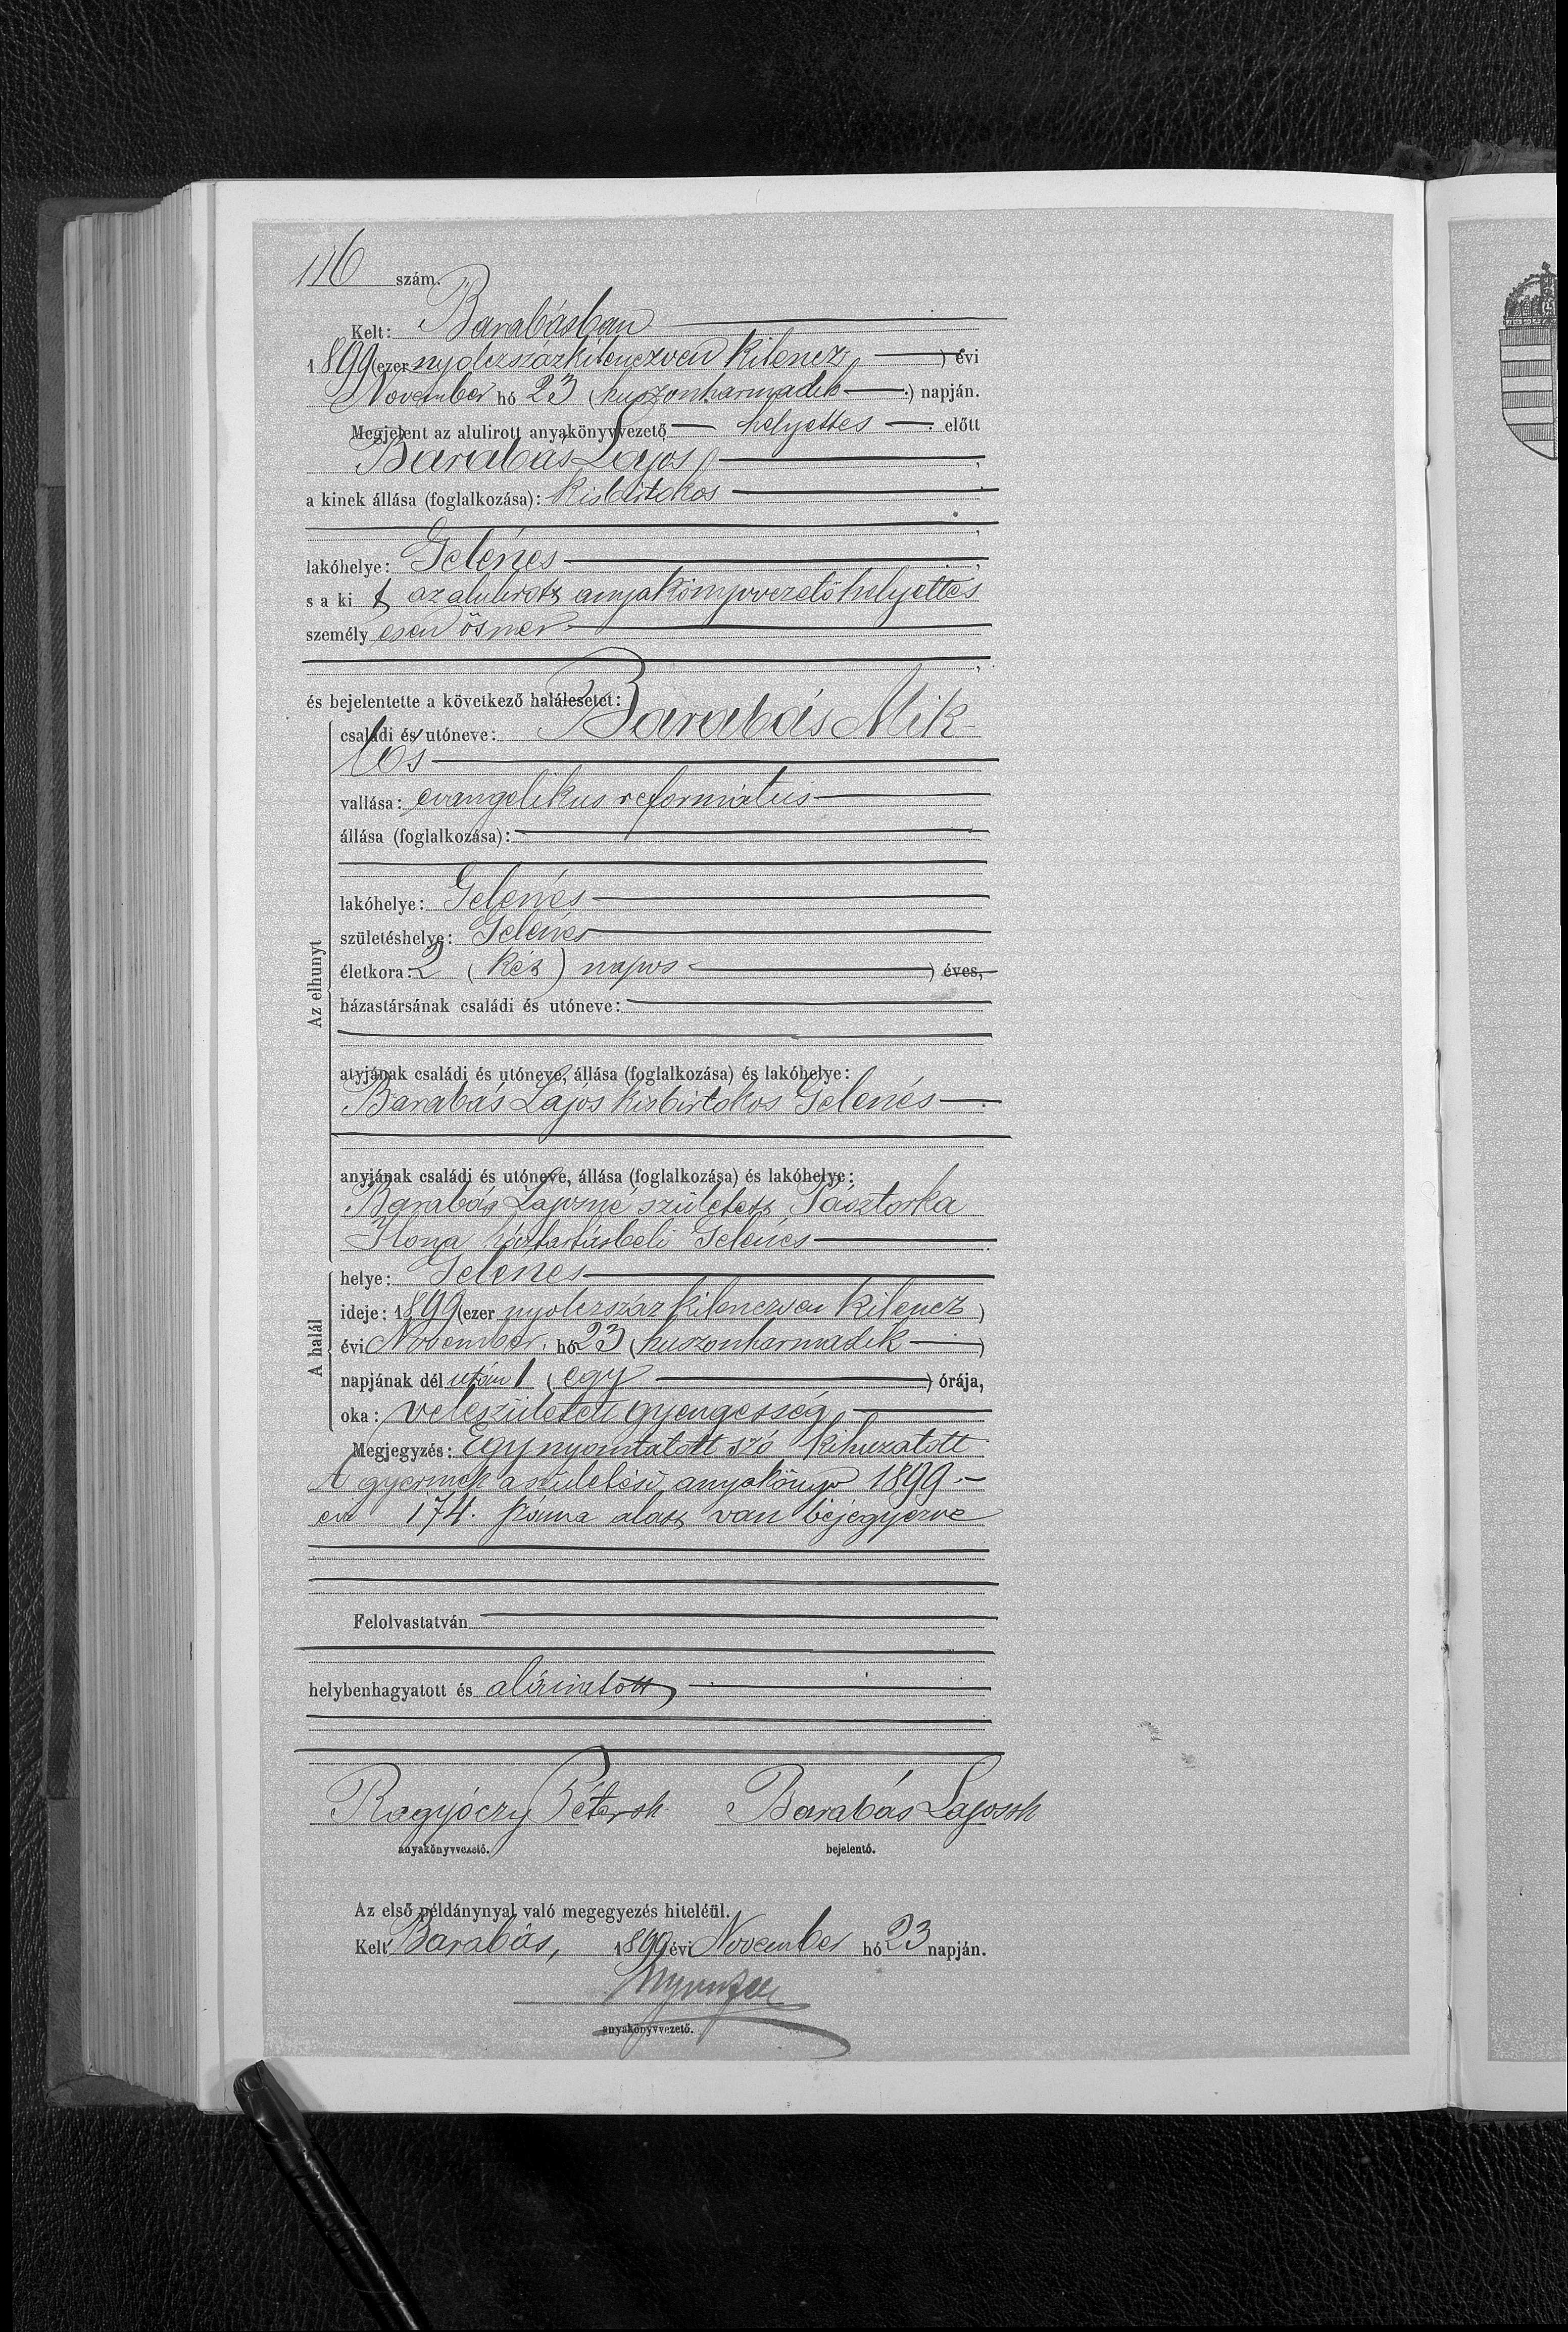 116 szám.
Kelt: Barabásban
1899 (ezer nyolczszázkilenczven kilencz) évi
November hó 23 (huszonharmadik) napján.
Megjelent az alulirott anyakönyvvezető helyettes előtt
Barabás Lajos,
a kinek állása (foglalkozása): kisbirtokos
lakóhelye: Gelénes
s a ki t az alulirott anyakönyvvezető helyettes
személy esen ösmer
és bejelentette a következő halálesetet:
Az elhunyt
családi és utóneve: Barabás Mik-
lós
vallása: evangelikus református
állása (foglalkozása):
lakóhelye: Gelénes
születéshelye: Gelénes
életkora: 2 (két) napos ) éves,
házastársának családi és utóneve:
atyjának családi és utóneve, állása (foglalkozása) és lakóhelye:
Barabás Lajos kisbirtokos Gelénes
anyjának családi és utóneve, állása (foglalkozása) és lakóhelye:
Barabás Lajosné született Pásztorka
Ilona háztartásbeli Gelénes
A halál
helye: Gelénes
ideje: 1899 (ezer nyolczszáz kilenczven kilencz)
évi November hó 23 (huszonharmadik)
napjának dél után 1 (egy) órája,
oka: veleszületett gyengesség
Megjegyzés: Egy nyomtatott szó kihuzatott
A gyermek a születési anyakönyv 1899.
évi 174. száma alatt van bejegyezve
Felolvastatván
helybenhagyatott és aláiratott
Ragyóczy Péter sk Barabás Lajos sk
anyakönyvvezető. bejelentő.
Az első példánynyal való megegyezés hiteléül.
Kelt Barabás, 1899 évi November hó 23 napján.
anyakönyvvezető.